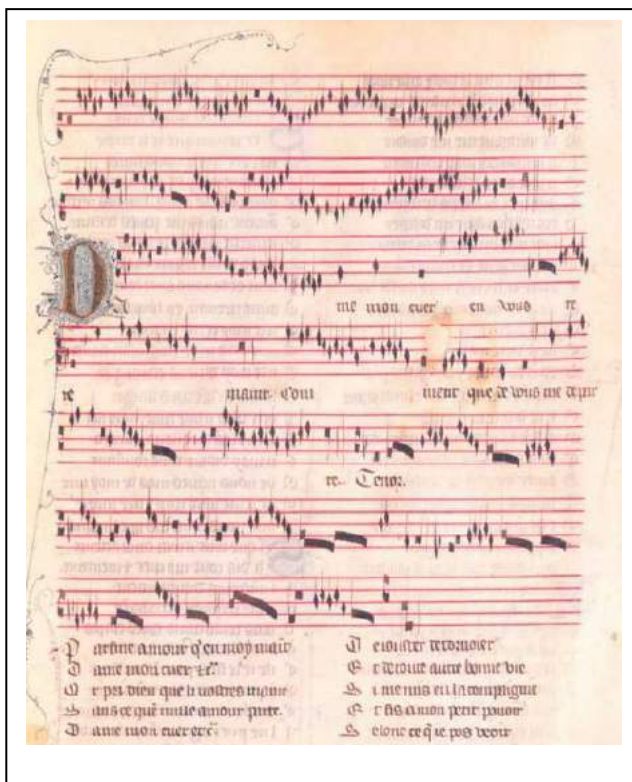 me mon cuer en vous re
maint Com ment que de vous me depar
te Tenor.
Par fine amour q̃ en moy maĩt
Dame mon cuer
Or pri dieu que li vostres
Sans ce que nulle amour parte.
Dame mon cuer et c̃
et de toute autre bonne vie
me mis en la compaignie
Et fis a mon petit pooir
Selonc ce q̃ ie pos veoir